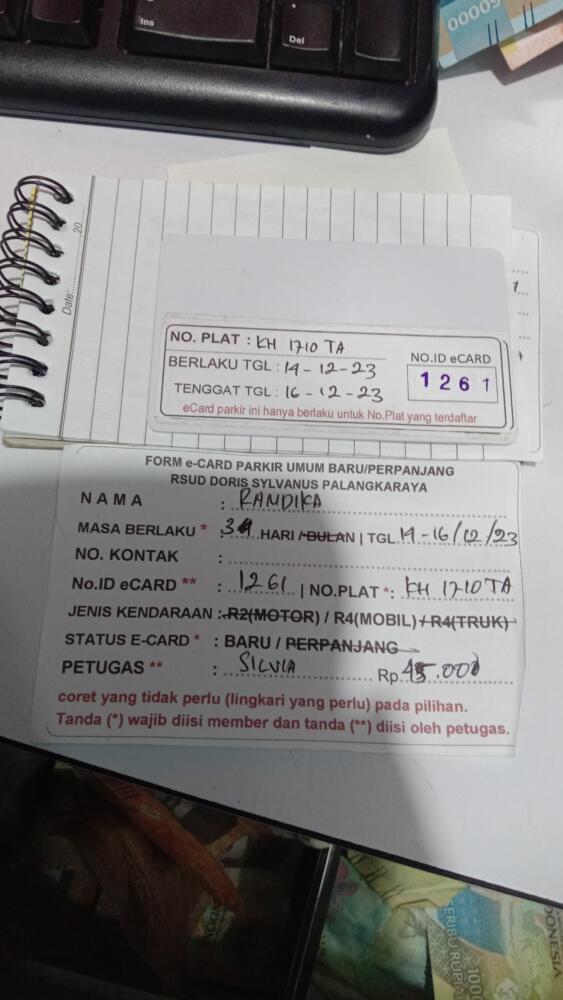 Ins
Del
00005
Date:..........20
NO. PLAT : KH 1710 TA
BERLAKU TGL : 14 - 12 - 23
TENGGAT TGL : 16 - 12 - 23
NO.ID eCARD
1261
eCard parkir ini hanya berlaku untuk No.Plat yang terdaftar
FORM e-CARD PARKIR UMUM BARU/PERPANJANG
RSUD DORIS SYLVANUS PALANGKARAYA
NAMA : RANDIKA
MASA BERLAKU * : 3 HARI /BULAN | TGL 14 - 16/12/23
NO. KONTAK :
No.ID eCARD ** : 1261 | NO.PLAT *: KH 1710 TA
JENIS KENDARAAN : R2(MOTOR) / R4(MOBIL) / R4(TRUK)
STATUS E-CARD * : BARU / PERPANJANG
PETUGAS ** : SILVIA Rp. 15.000
coret yang tidak perlu (lingkari yang perlu) pada pilihan.
Tanda (*) wajib diisi member dan tanda (**) diisi oleh petugas.
SERIBU RUPIAH
1000